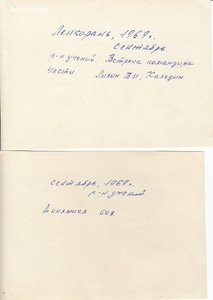 Ленкорань, 1969г.
сентябрь
р-н учений. Встреча командира
части. Лилин В.И, Каледин.
сентябрь, 1969г.
р-н учений
Динамика боя